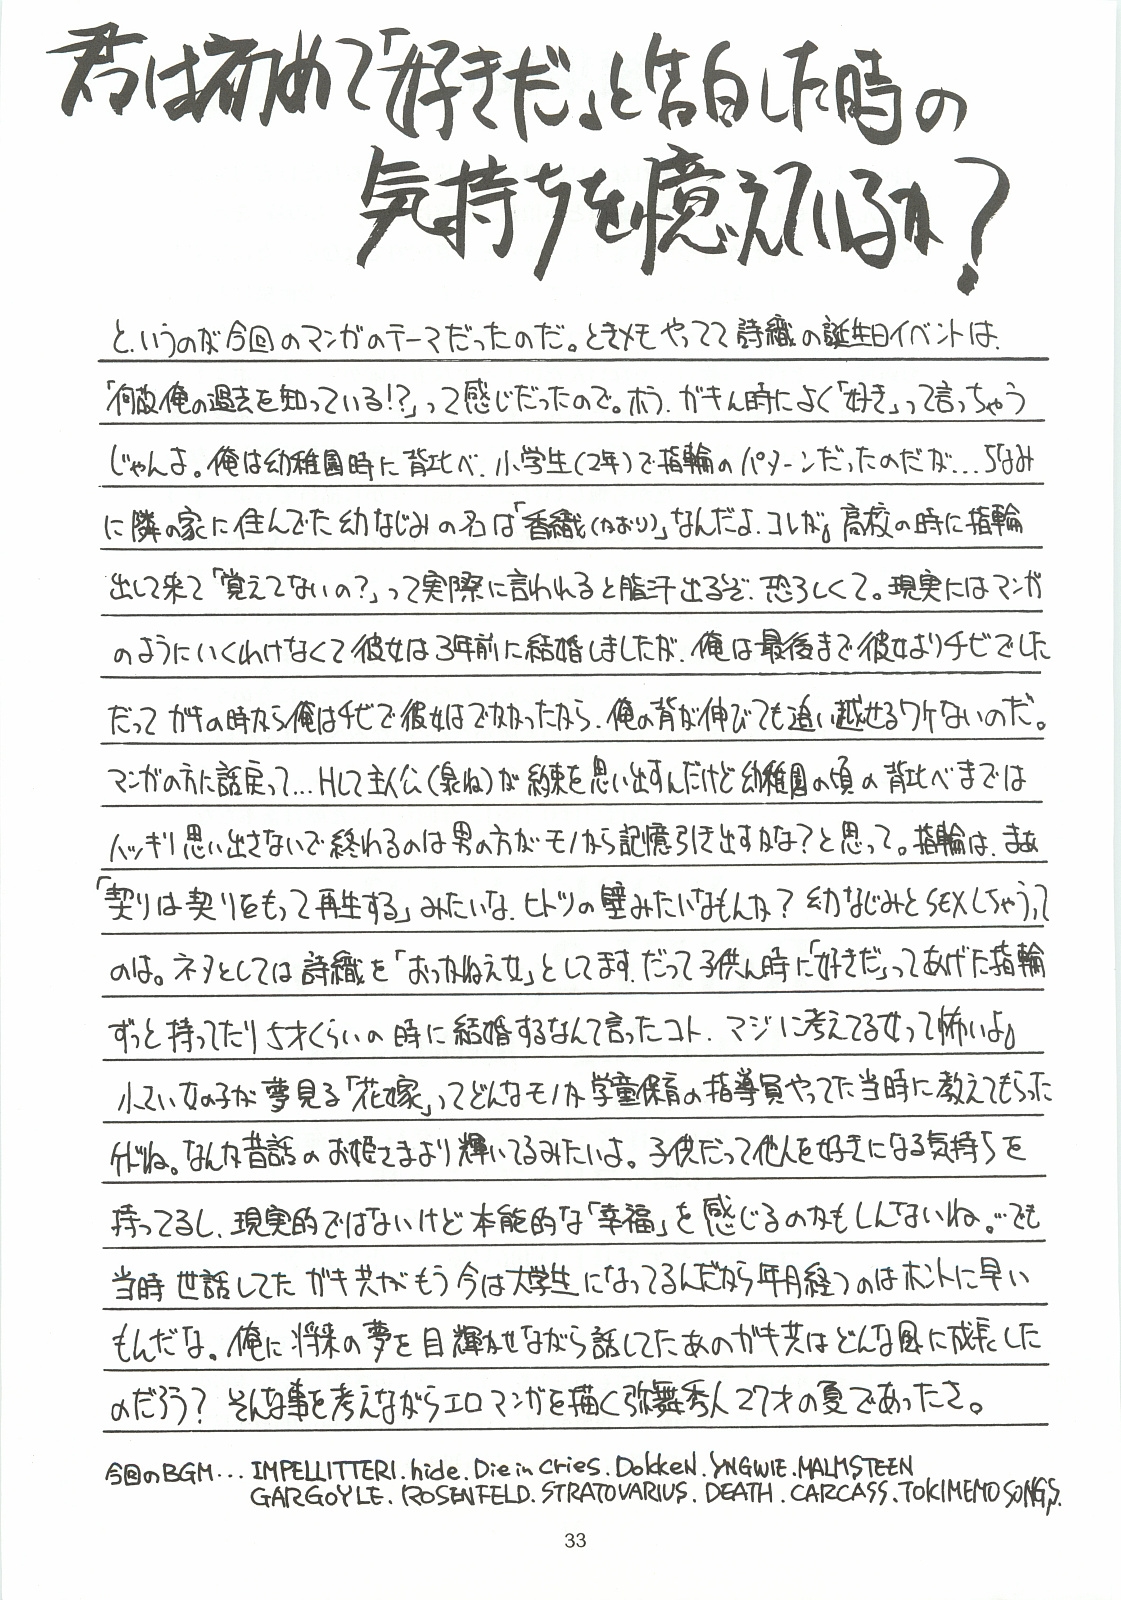 君は初めて「好きだ」と告白した時の
気持ちを憶えているか?
と、いうのが今回のマンガのテーマだったのだ。ときメモやってて詩織の誕生日イベントは、
「何故俺の過去を知っている!?」って感じだったので。ホラ、ガキん時によく「好き」って言っちゃう
じゃんよ。俺は幼稚園時に背比べ、小学生(2年)で指輪のパターンだったのだが...ちなみ
に隣の家に住んでた幼なじみの名は「香織(かおり)」なんだよ、コレが。高校の時に指輪
出して来て「覚えてないの?」って実際に言われると脂汗出るぞ、恐ろしくて。現実にはマンガ
のようにいくわけなくて彼女は3年前に結婚しましたが、俺は最後まで彼女よりチビでした
だってガキの時から俺はチビで彼女はでかかったから、俺の背が伸びても追い越せるワケないのだ。
マンガの方に話戻って...Hして主人公(泉ね)が約束を思い出すんだけど幼稚園の頃の背比べまでは
ハッキリ思い出さないで終れるのは男の方がモノから記憶引き出すかな?と思って。指輪は、まぁ
「契りは契りをもって再生する」みたいな、ヒトツの壁みたいなもんか?幼なじみとSEXしちゃうって
のは。ネタとしては詩織を「おっかねえ女」としてます、だって子供ん時に「好きだ」ってあげた指輪
ずっと持ってたり5才くらいの時に結婚するなんて言ったコト、マジに考えてる女って怖いよ。
小さい女の子が夢見る「花嫁」ってどんなモノか学童保育の指導員やってた当時に教えてもらった
けどね。なんか昔話のお姫さまより輝いてるみたいよ。子供だって他人を好きになる気持ちを
持ってるし、現実的ではないけど本能的な「幸福」を感じるのかもしんないね。...でも
当時世話してたガキ共がもう今は大学生になってるんだから年月経つのはホントに早い
もんだな。俺に将来の夢を目輝かせながら話してたあのガキ共はどんな風に成長した
のだろう?そんな事を考えながらエロマンガを描く弥舞秀人27才の夏であったさ。
今回のBGM...IMPELLITTERI.hide.Die in Cries.DokkeN.YNGWIE.MALMSTEEN
GARGOYLE.ROSENFELD.STRATOVARIUS.DEATH.CARCASS.TOKIMEMO SONGS.
33